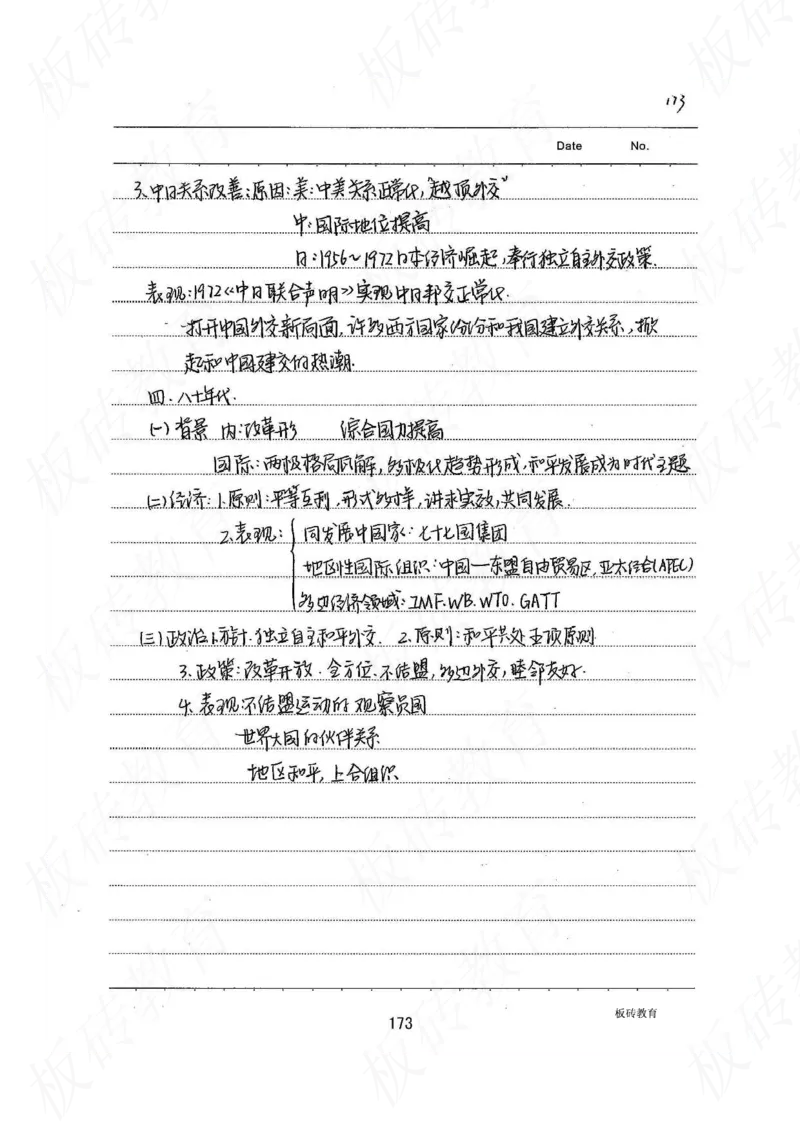 173
Date No.
3、中日关系改善:原因:美:中美关系正常化,"越顶外交"
中:国际地位提高
日:1956~1972日本经济崛起,奉行独立自主外交政策.
表现:1972《中日联合声明》实现中日邦交正常化.
打开中国外交新局面,许多西方国家纷纷和我国建立外交关系,掀
起和中国建交的热潮.
四.八十年代.
(一)背景 内:改革形 综合国力提高
国际:两极格局瓦解,多极化趋势形成,和平发展成为时代主题
(二)经济:1.原则:平等互利,形式多样,讲求实效,共同发展.
2.表现: 同发展中国家:七十七国集团
地区性国际组织:中国—东盟自由贸易区,亚太经合(APEC)
多边经济领域:IMF.WB.WTO.GATT
(三)政治1.方针.独立自主和平外交. 2.原则:和平共处五项原则
3.政策:改革开放.全方位.不结盟,多边外交,睦邻友好.
4.表现:不结盟运动的观察员国
世界大国的伙伴关系
地区和平,上合组织
173
板砖教育